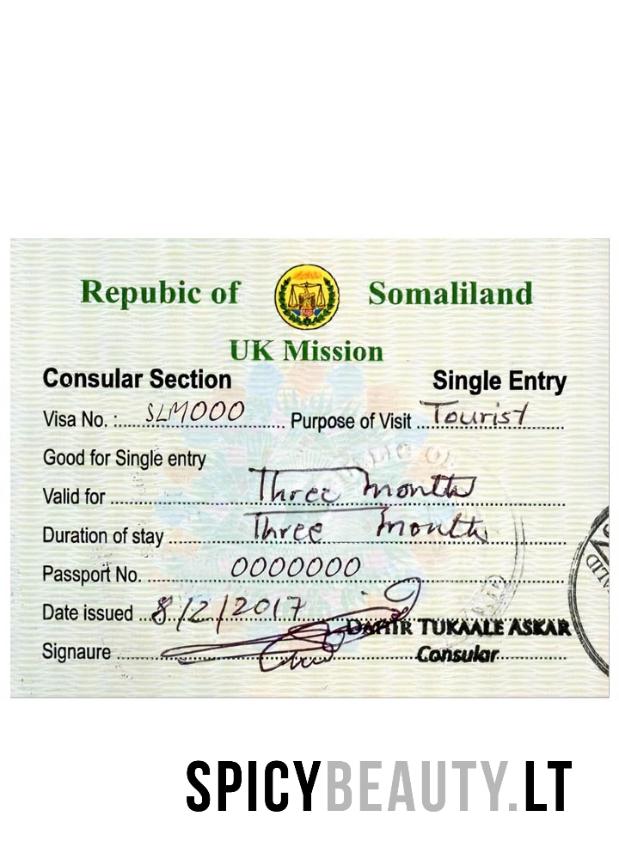 Repubic of Somaliland
UK Mission
Consular Section Single Entry
Visa No. : SLM000 Purpose of Visit Tourist
Good for Single entry
Valid for Three months
Duration of stay Three months
Passport No. 0000000
Date issued 8/2/2017
DAHIR TUKAALE ASKAR
Signaure Consular
SPICYBEAUTY.LT